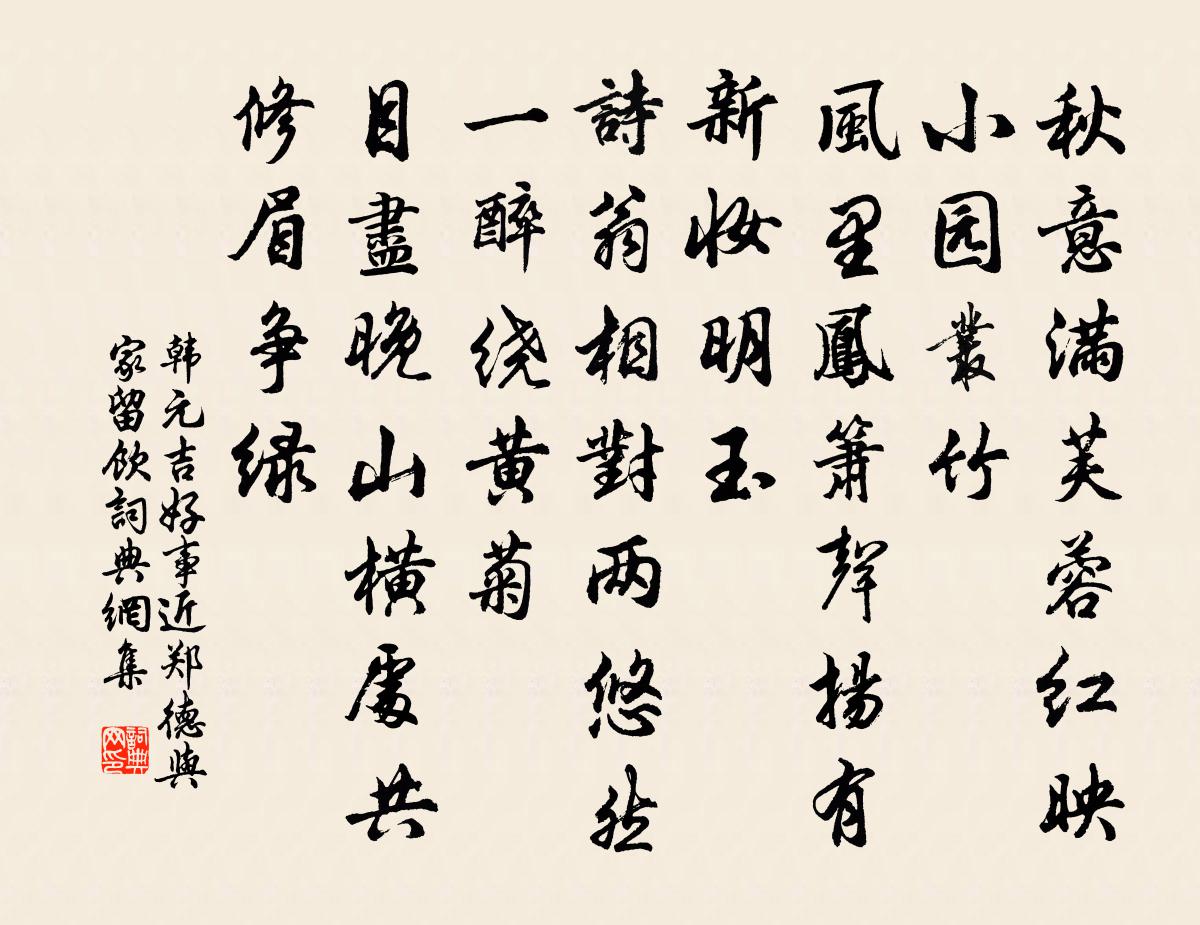 秋意滿芙蓉紅映
小园叢竹
風里鳳簫聲揚有
新妝明玉
詩翁相對兩悠然
一醉绕黄菊
目盡晚山橫處共
修眉争绿
韩元吉好事近郑德與
家留飲詞典網集
詞典网印